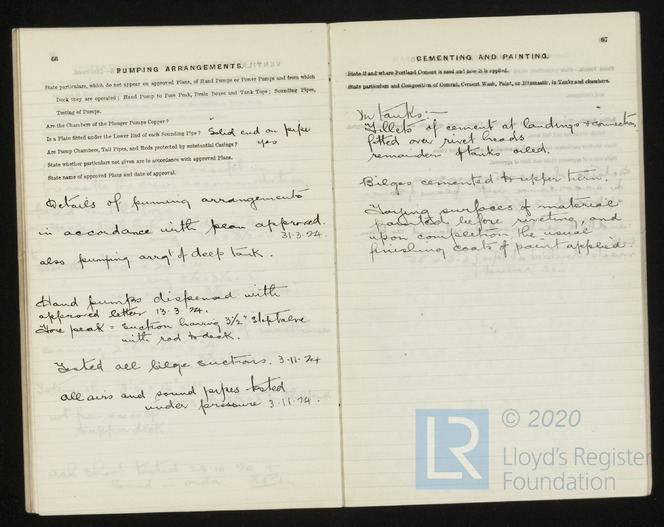 66
PUMPING ARRANGEMENTS.
State particulars, which do not appear on approved Plans, of Hand Pumps or Power Pumps and from which
Deck they are operated; Hand Pump to Fore Peak, Drain Boxes and Tank Tops; Sounding Pipes,
Testing of Pumps.
Are the Chambers of the Plunger Pumps Copper?
Is a Plate fitted under the Lower End of each Sounding Pipe? Solid end on pipe
Are Pump Chambers, Tail Pipes, and Rods protected by substantial Casings? yes
State whether particulars not given are in accordance with approved Plans.
State name of approved Plans and date of approval.
Details of pumping arrangements
in accordance with plan approved.
31.3.24.
also pumping arrgt of deep tank.
Hand pumps dispensed with
approved letter 13.3.24.
Fore peak = suction having 3½" steptvalve
with rod to deck.
Tested all bilge suctions. 3.11.24
all airs and sound pipes tested
under pressure 3.11.24.
67
CEMENTING AND PAINTING.
State if and where Portland Cement is used and how it is applied.
State particulars and Composition of Cement, Cement Wash, Paint, or Bitumastic, in Tanks and chambers.
In tanks:-
Fillets of cement at landings & connections
fitted over rivet heads
remainder of tanks oiled.
Bilges cemented to upper turn.
Faying surfaces of material
painted before riveting, and
upon completion the usual
finishing coats of paint applied.
LR
© 2020
Lloyd's Register
Foundation